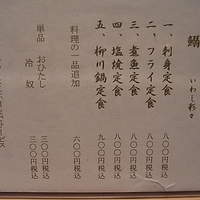 鰯 いわし彩々
一、刺身定食 八〇〇円税込
二、フライ定食 八〇〇円税込
三、煮魚定食 八〇〇円税込
四、塩焼定食 八〇〇円税込
五、柳川鍋定食 九〇〇円税込
料理の一品追加 六〇〇円税込
単品 おひたし 三〇〇円税込
冷奴 三〇〇円税込